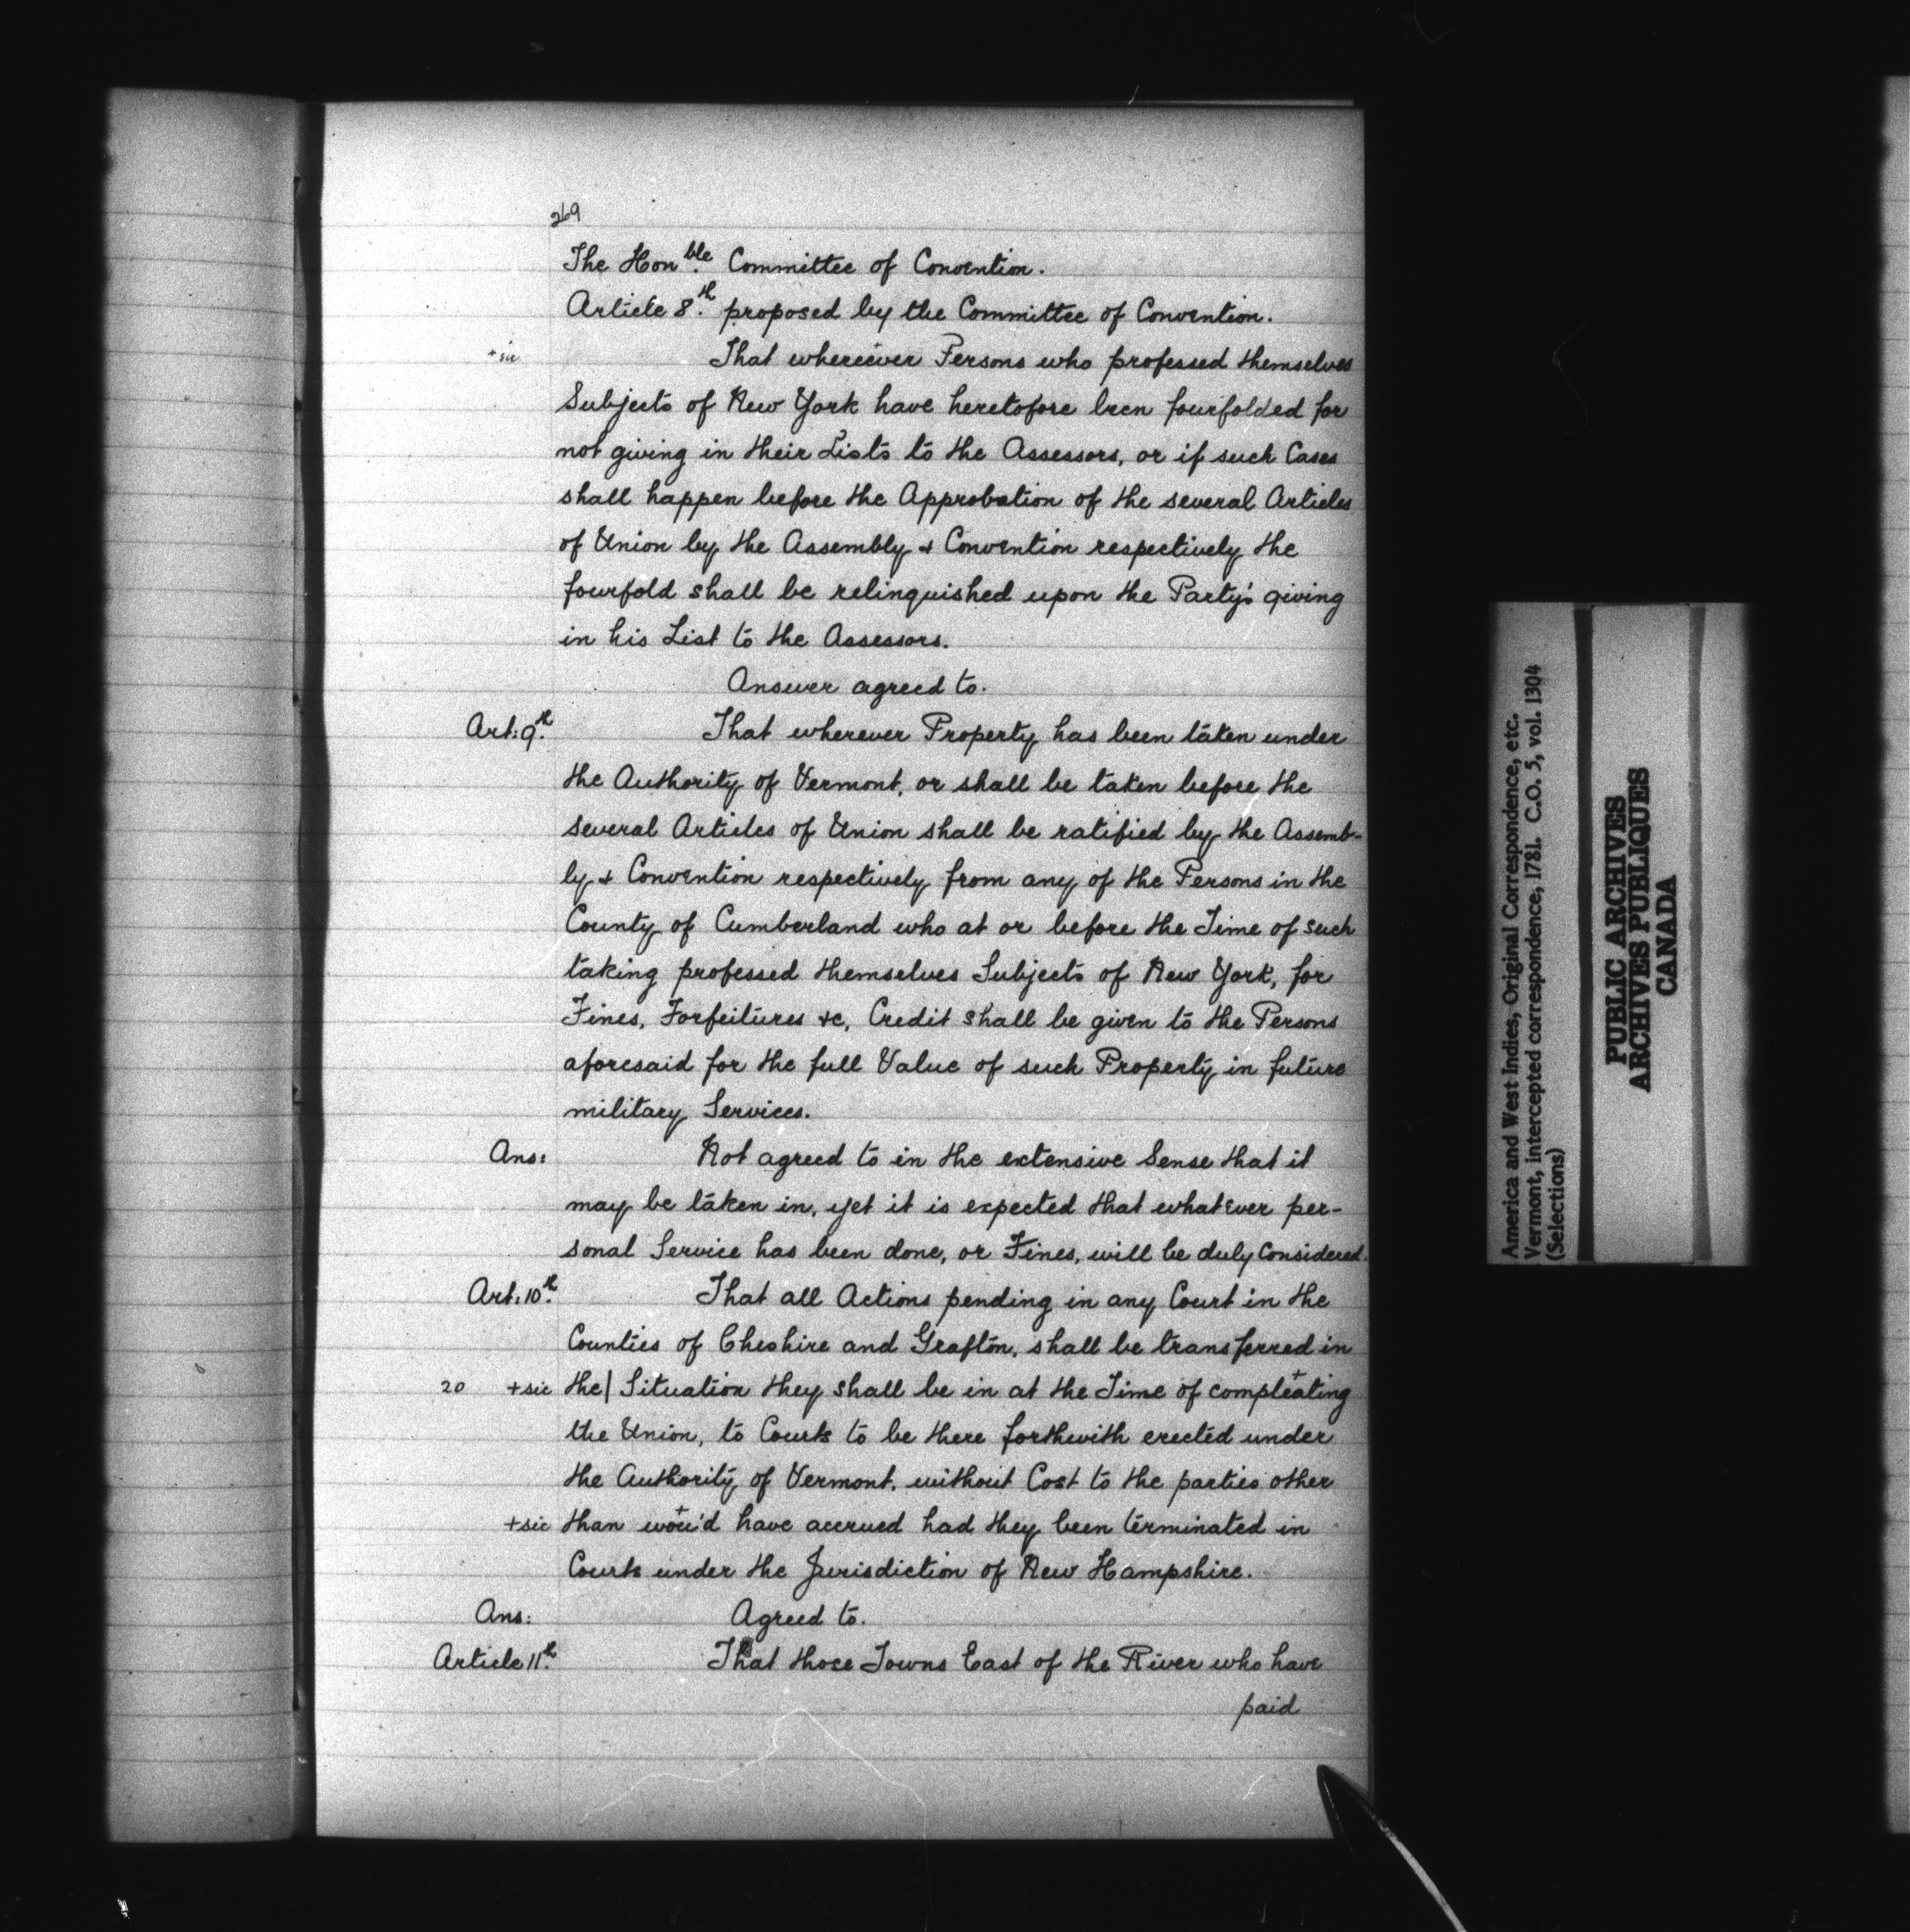 269
The Hon.ble Committee of Convention.
Article 8.th proposed by the Committee of Convention.
+sic That whereever Persons who professed themselves
Subjects of New York have heretofore been fourfolded for
not giving in their Lists to the Assessors, or if such Cases
shall happen before the Approbation of the several Articles
of Union by the Assembly & Convention respectively the
fourfold shall be relinquished upon the Party's giving
in his List to the Assessors.
Answer agreed to.
Art: 9.th That wherever Property has been taken under
the Authority of Vermont, or shall be taken before the
several Articles of Union shall be ratified by the Assemb-
ly & Convention respectively from any of the Persons in the
County of Cumberland who at or before the Time of such
taking professed themselves Subjects of New York, for
Fines, Forfeitures &c, Credit shall be given to the Persons
aforesaid for the full Value of such Property in future
military Services.
Ans: Not agreed to in the extensive Sense that it
may be taken in, yet it is expected that whatever per-
sonal Service has been done, or Fines, will be duly Considered.
Art: 10.th That all Actions pending in any Court in the
Counties of Cheshire and Grafton, shall be transferred in
20 +sic the| Situation they shall be in at the Time of compleating
the Union, to Courts to be there forthwith erected under
the Authority of Vermont, without Cost to the parties other
+sic than wou'd have accrued had they been terminated in
Courts under the Jurisdiction of New Hampshire.
Ans: Agreed to.
Article 11.th That those Towns East of the River who have
paid
America and West Indies, Original Correspondence, etc.
Vermont, intercepted correspondence, 1781. C.O. 5, vol. 1304
(Selections)
PUBLIC ARCHIVES
ARCHIVES PUBLIQUES
CANADA